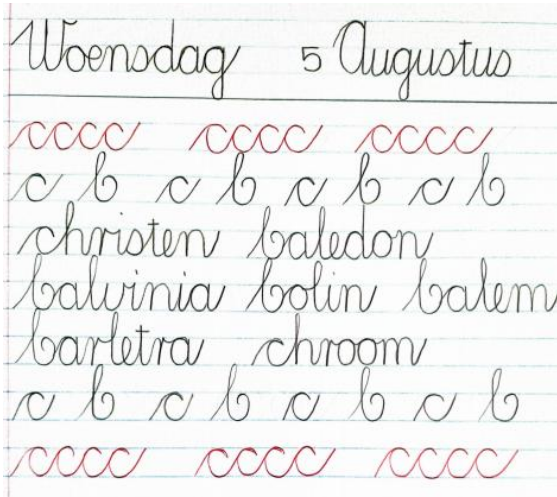 Woensdag 5 Augustus
cccc cccc cccc
c C c C c C c C
christen Caledon
Calvinia Colin Calem
Carletra chroom
c C c C c C c C
cccc cccc cccc